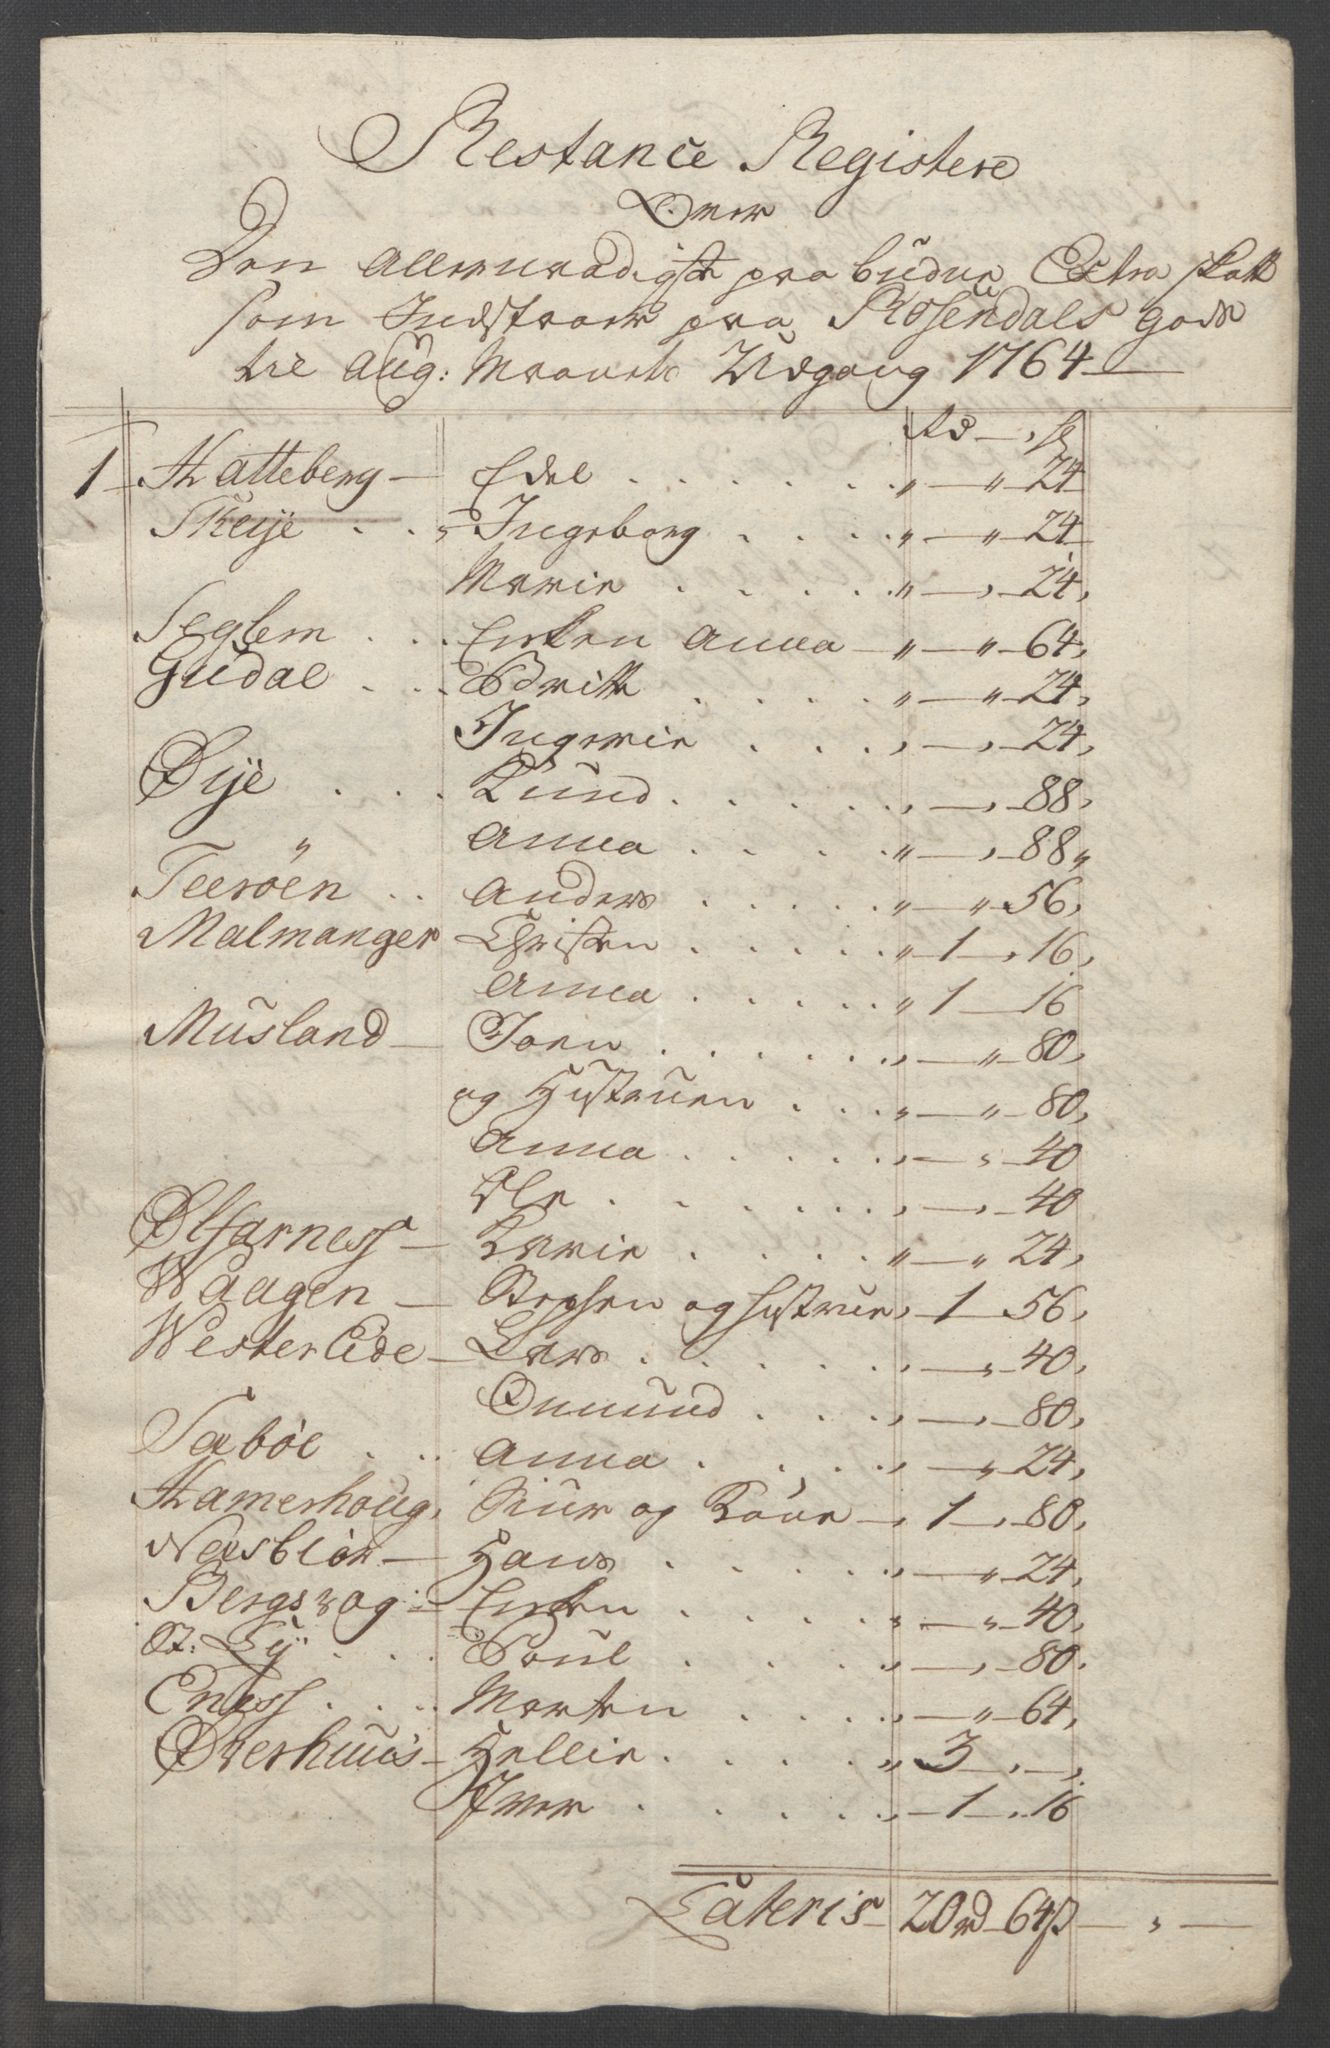 Restance Registere
Over
Den allernaadigste paabudne Extra skatt
som Indstaar paa Rosendals gods
til Aug: Maaneds Udgang 1764
Rd — , ß
1 Hatteberg — Edel . . . . . . . " — " 24
Skeije . . , Ingeborg . . . . " — " 24
Marie . . . . . " — , 24,
Seglem . . . Enken Anna — " — " 64,
Gudal . . . Britte . . . . " — " 24,
Ingerie . . . , — , 24,
Øije . . . Knud . . . . . , — , 88,
" Anna . . . . . " — , 88,,
Teerøen . . Anders . . . . . " — " 56,
Malmanger Christen . . . . . " 1 — , 16,
Anna . . . . . " 1 — 16
Musland — Joen . . . . . . , — " 80,
og Hustruen . . . , — " 80,
Anna . . . . . , — , 40
Ole . . . . . . , — , 40
Ølfarness — Karie . . . . " — " 24,
Waagen — Stephen og Hustrue , 1 — 56,
Wester Eide — Lars . . . . . , — , 40,
Omund . . . , — , 80,
Sæbøe . . . Anna . . . . , — , 24,
Hamerhoug, Siur og Kone — , 1 — , 80,
Næsbiør — Hans . . . . . , — " 24,
Bergsvog — Enken . . . . . , — " 40,
St: Lij . . . Poul . . . . " — , 80.
Eness . . . . Morten . . . . , — " 64,
Øverhuus — Hellie . . . . . " 3 — , — ,
Iver . . . . . , — 1 — , 16
Lateris — 20 rd 64 ß — , —